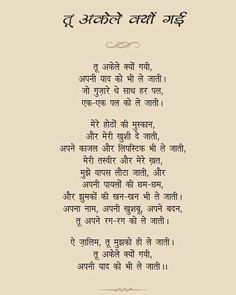 तू अकेले क्यों गई
तू अकेले क्यों गयी,
अपनी याद को भी ले जाती।
जो गुज़ारे थे साथ हर पल,
एक-एक पल को ले जाती।
मेरे होठों की मुस्कान,
और मेरी खुशी दे जाती,
अपने काजल और लिपस्टिक भी ले जाती,
मेरी तस्वीर और मेरे ख़त,
मुझे वापस लौटा जाती, और
अपनी पायलों की छम-छम,
और झुमकों की खन-खन भी ले जाती।
अपना नाम, अपनी खुशबू, अपने बदन,
तू अपने रग-रग को ले जाती।
ऐ ज़ालिम, तू मुझको ही ले जाती।
तू अकेले क्यों गयी,
अपनी याद को भी ले जाती।।